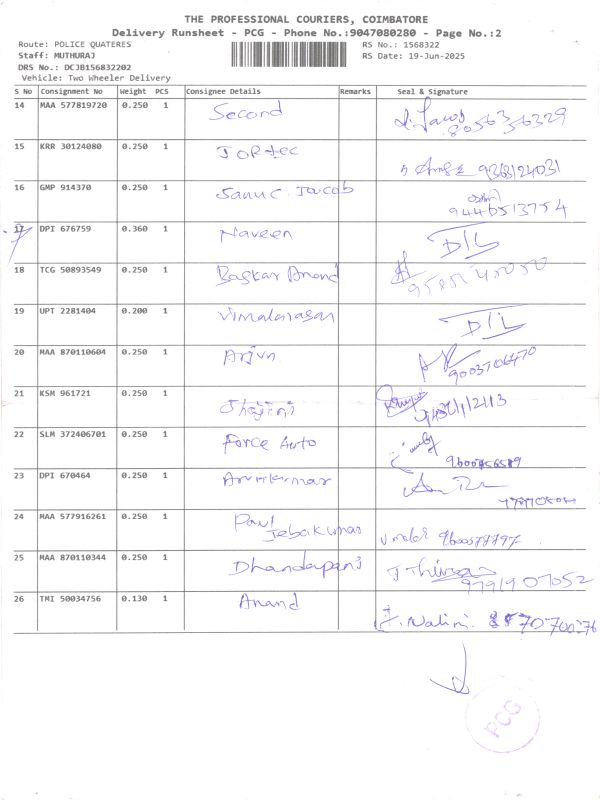 THE PROFESSIONAL COURIERS, COIMBATORE
Delivery Runsheet - PCG - Phone No.:9047080280 - Page No.:2
Route: POLICE QUATERES RS No.: 1568322
Staff: MUTHURAJ RS Date: 19-Jun-2025
DRS No.: DCJB156832202
Vehicle: Two Wheeler Delivery
S No Consignment No Weight PCS Consignee Details Remarks Seal & Signature
14 MAA 577819720 0.250 1 Second 8056356329
15 KRR 30124080 0.250 1 9363124031
16 GMP 914370 0.250 1 9446513754
17 DPI 676759 0.360 1 Naveen D/L
18 TCG 50893549 0.250 1 Baskar Anand
19 UPT 2281404 0.200 1 Vimalarasan D/L
20 MAA 870110604 0.250 1 Arjun
21 KSM 961721 0.250 1
22 SLM 372406701 0.250 1 Force Auto
23 DPI 670464 0.250 1 Arunkumar
24 MAA 577916261 0.250 1 Paul Jebakumar
25 MAA 870110344 0.250 1 Dhandapani 9791907052
26 TMI 50034756 0.130 1 Anand Nalini
PCG